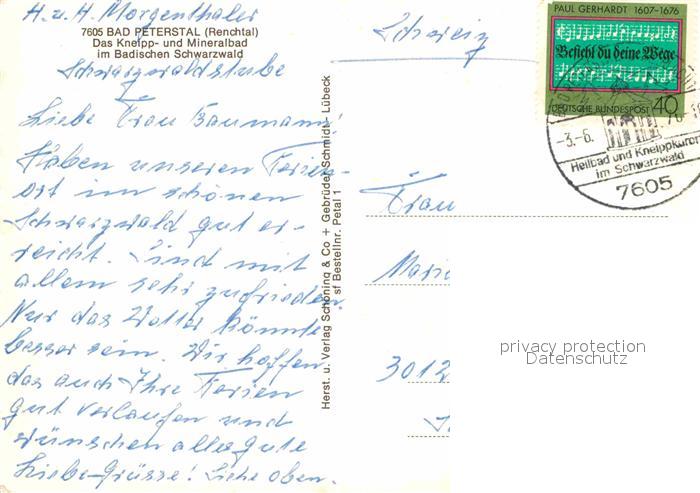 H. u. H. Morgenthaler
7605 BAD PETERSTAL (Renchtal)
Das Kneipp- und Mineralbad
im Badischen Schwarzwald
Schwarzwaldstube
Liebe Frau Baumann!
Haben unseren Ferien-
ort im schönen
Schwarzwald gut er-
reicht. Sind mit
allem sehr zufrieden.
Nur das Wetter könnte
besser sein. Wir hoffen
das auch Ihre Ferien
gut verlaufen und
wünschen alles gute
Liebe Grüsse! Siehe oben.
Herst. u. Verlag Schöning & Co + Gebrüder Schmidt, Lübeck
sf Bestellnr. Petal 1
Schweiz
PAUL GERHARDT 1607-1676
Befiehl du deine Wege
DEUTSCHE BUNDESPOST 40
-3.-6.
Heilbad und Kneippkurort
im Schwarzwald
7605
Frau
3012
privacy protection
Datenschutz